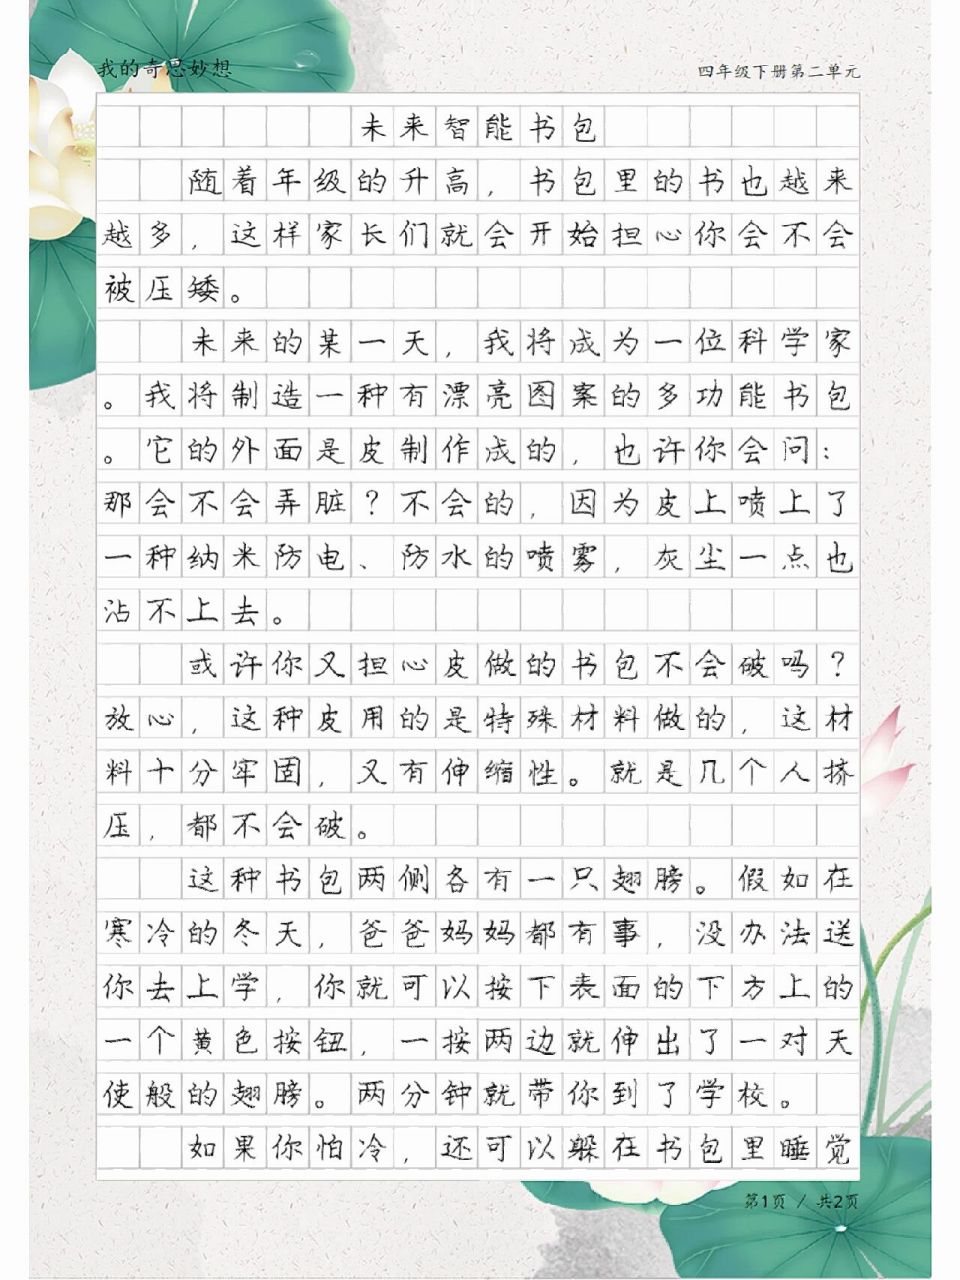 我的奇思妙想
四年级下册第二单元
未来智能书包
随着年级的升高，书包里的书也越来
越多，这样家长们就会开始担心你会不会
被压矮。
未来的某一天，我将成为一位科学家
。我将制造一种有漂亮图案的多功能书包
。它的外面是皮制作成的，也许你会问：
那会不会弄脏？不会的，因为皮上喷上了
一种纳米防电、防水的喷雾，灰尘一点也
沾不上去。
或许你又担心皮做的书包不会破吗？
放心，这种皮用的是特殊材料做的，这材
料十分牢固，又有伸缩性。就是几个人挤
压，都不会破。
这种书包两侧各有一只翅膀。假如在
寒冷的冬天，爸爸妈妈都有事，没办法送
你去上学，你就可以按下表面的下方上的
一个黄色按钮，一按两边就伸出了一对天
使般的翅膀。两分钟就带你到了学校。
如果你怕冷，还可以躲在书包里睡觉
第1页 / 共2页